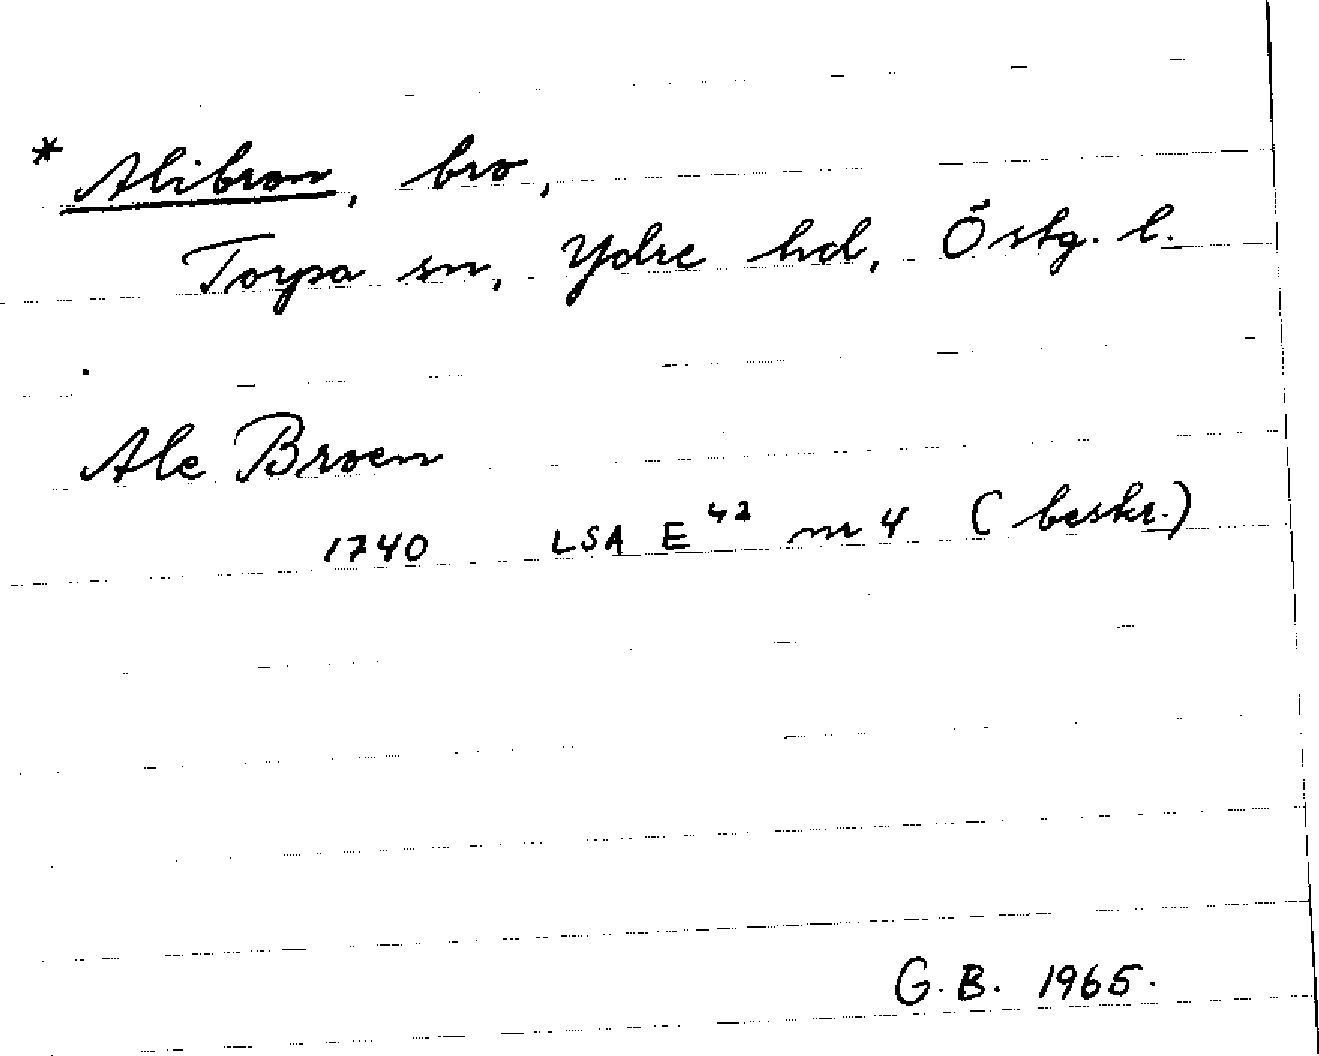 * Alibron, bro,
Torpa sn, Ydre hd, Östg. l.
Ale Broen
1740 LSA E 42 nr 4 (beskr.)
G. B. 1965.